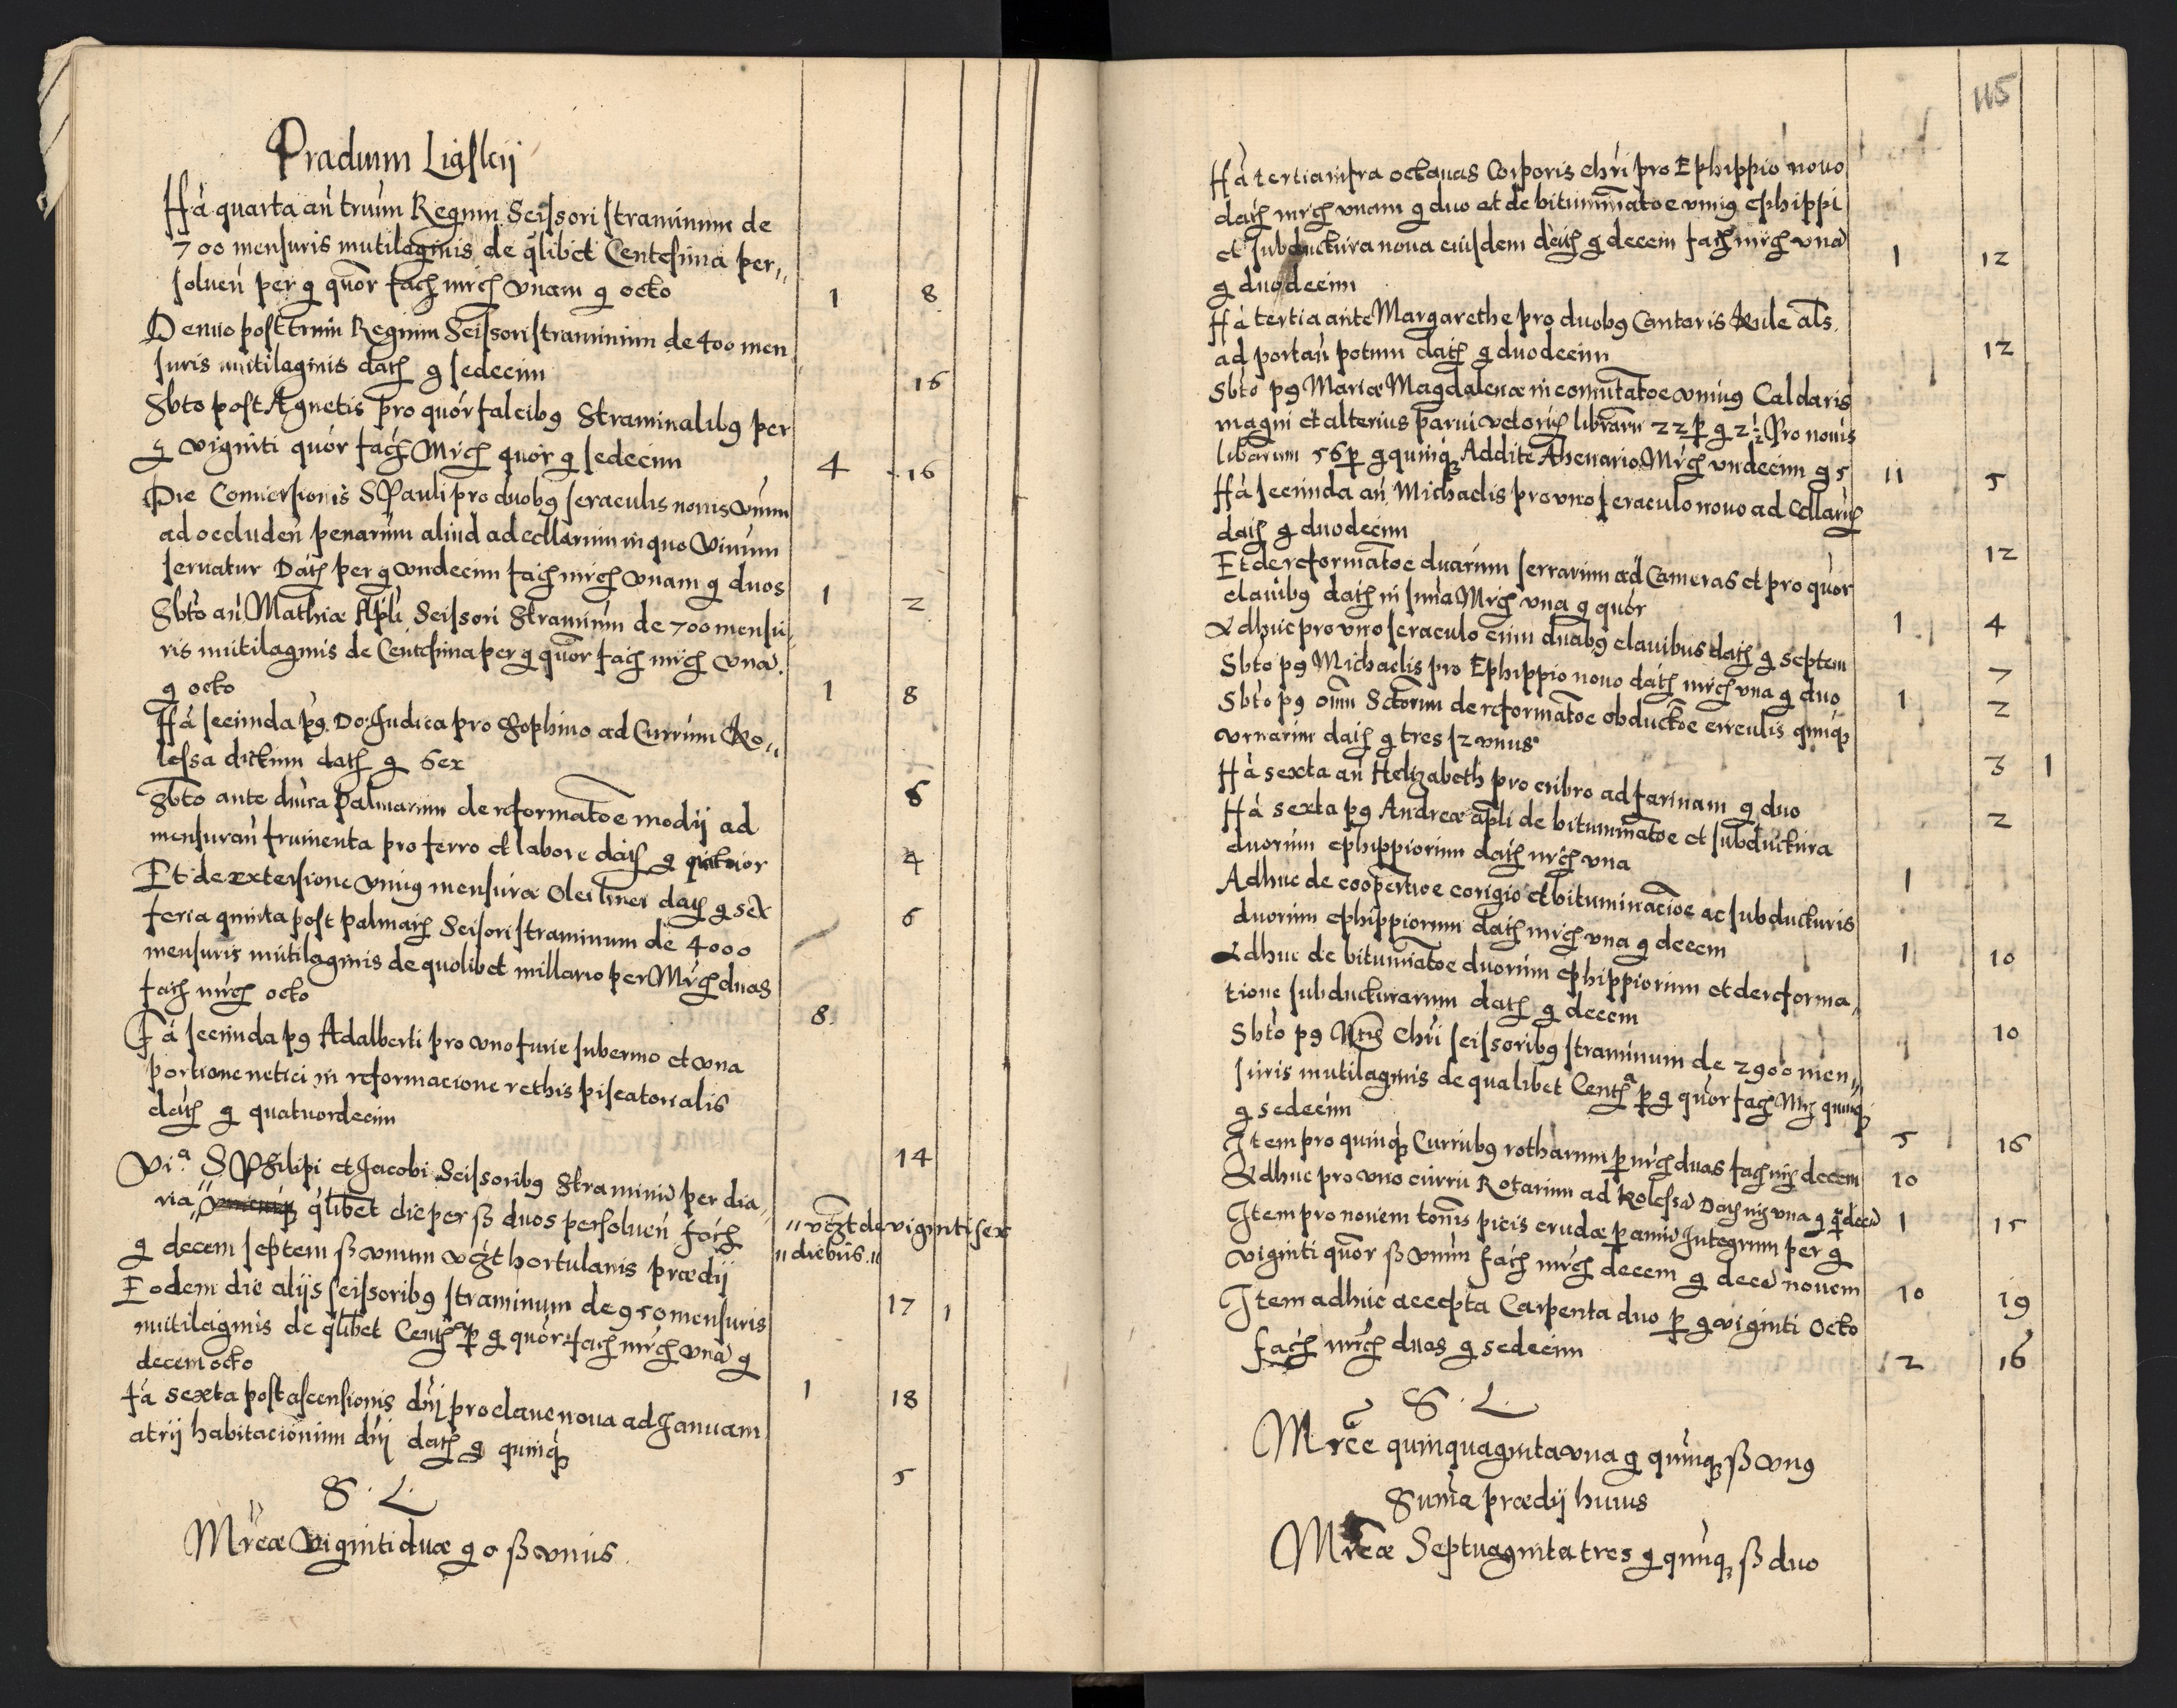 Prædium Ligskij
ffā quarta an̄ trium Regum Scissori straminum de
700 mensuris mutilaginis de q̄libet Centesima per„
soluen̄ per g quōr facꝭ mrcꝭ vnam g octo 1 8
Denuo post trium Regum Scissori straminum de 400 men
suris mutilaginis datꝭ g sedecim 16
Sbto post Agnetis pro quōr falcibꝰ Straminalibꝰ per
g viginti quōr facꝭ Mrcꝭ quōr g sedecim 4 16
Die Conuersionis S Pauli pro duobꝰ seraculis nouis vnum
ad occluden̄ penarium aliud ad cellarium in quo Vinum
seruatur Datꝭ per g vndecim facꝭ mrcꝭ vnam g duos 1 2
Sbto an̄ Mathiæ Apli Scissori Straminum de 700 mensu„
ris mutilaginis de Centesima per g quōr facꝭ mrcꝭ vnā
g octo 1 8
ffā secunda pꝰ Do: Judica pro Sophino ad Currum Ko„
lessa dictum datꝭ g Sex 6
Sbto ante diuā Palmarum de reformatōe modij ad
mensuran̄ frumenta pro ferro et labore datꝭ g quatuor 4
Et de extersione vniꝰ mensuræ Olei linei datꝭ g sex 6
feria quinta post palmarꝭ Scisori straminum de 4000
mensuris mutilaginis de quolibet millario per Mrcꝭ duas
facꝭ mrcꝭ octo 8
Fā secunda pꝰ Adalberti pro vno fune suberino et vna
portione netici in reformacione rethis piscatorialis
datꝭ g quatuordecim 14
Viª S Philipi et Jacobi Scissoribꝰ Straminū per dia„
ria q̄libet die per ß duos persoluen̄ facꝭ „vczt de viginti sex
g decem septem ß vnum vczt hortulanis prædij „diebus.„
17 1
Eodem die alijs scissoribꝰ straminum de 950 mensuris
mutilaginis de q̄libet Centꝭª p g quōr facꝭ mrcꝭ vnā g
decem octo 1 18
fā sexta post ascensionis dn̄j pro claue noua ad Januam
atrij habitacionum dn̄j datꝭ g quinqꝫ 5
S. L.
Mrcæ Viginti duæ g 0 ß vnus.
115
ffā tertia infra octauas Corporis chri pro Ephippio nouo
datꝭ mrcꝭ vnam g duo et de bituminatōe vniꝰ ephippi
et subductura noua eiusdem datꝭ g decem facꝭ mrcꝭ vnā
g duodecim 1 12
ffā tertia ante Margarethe pro duobꝰ Cantaris Kule als
ad portan̄ potum datꝭ g duodecim 12
Sbto pꝰ Mariæ Magdalenæ in comutatōe vniꝰ Caldaris
magni et alterius parui vetorꝭ librarū 22 p g 2½ Pro nouis
librarum 56 p g quinqꝫ Addite Ahenario Mrcꝭ vndecim g 5 11 5
ffā secunda an̄ Michaelis pro vno seraculo nouo ad Cellarꝭ
datꝭ g duodecim 12
Et de reformatōe duarum serrarum ad Cameras et pro quōr
clauibꝰ datꝭ in suma Mrcꝭ vna g quōr 1 4
Adhuc pro vno seraculo cum duabꝰ clauibus datꝭ g septem 7
Sbto pꝰ Michaelis pro Ephippio nouo datꝭ mrcꝭ vna g duo 1 2
Sbto pꝰ oīm Sctorum de reformatōe obductōe circulis quinqꝫ
vrnarum datꝭ g tres ß vnus 3 1
ffā sexta an̄ Heltzabeth pro cribro ad farinam g duo 2
ffā sexta pꝰ Andreæ apli de bituminatōe et subductura
duorum ephippiorum datꝭ mrcꝭ vna 1
Adhuc de coopertioē corigio et bituminacioē ac subducturis
duorum ephippiorum datꝭ mrcꝭ vna g decem 1 10
Adhuc de bituminatōe duorum ephippiorum et de reforma„
tione subducturarum datꝭ g decem 10
Sbto pꝰ Ntis Chri scissoribꝰ straminum de 2900 men„
suris mutilaginis de qualibet Centꝭª p g quōr facꝭ Mrꝭ quinqꝫ
g sedecim 5 16
Item pro quinqꝫ Curribꝰ rotharum p mrcꝭ duas facꝭ mrꝭ decem 10
Adhuc pro vno curru Rotarum ad Kolessā Datꝭ mrꝭ vna g q̄decī 1 15
Item pro nouem tonis picis crudæ p annū Integrum per g
viginti quōr ß vnum facꝭ mrcꝭ decem g decē nouem 10 19
Item adhuc accepta Carpenta duo p g viginti octo
facꝭ mrcꝭ duas g sedecim 2 16
S. L.
Mrcæ quinquaginta vna g quinqꝫ ß vnꝰ
Suma prædij huius
Mrcæ Septuaginta tres g quinqꝫ ß duo